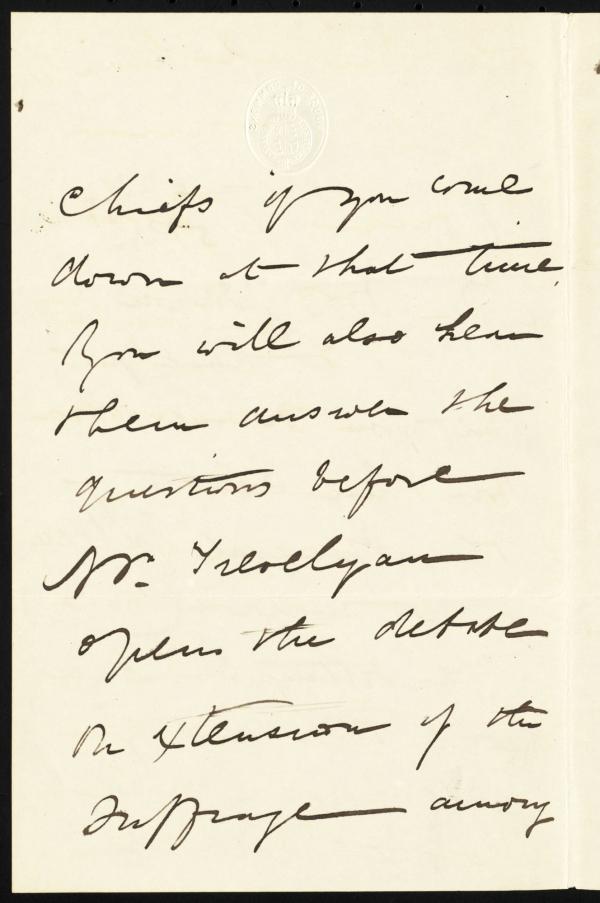 chiefs if you come
down at that time.
You will also hear
them answer the
questions before
Mr. Trevelyan
opens the debate
on extension of the
Suffrage among